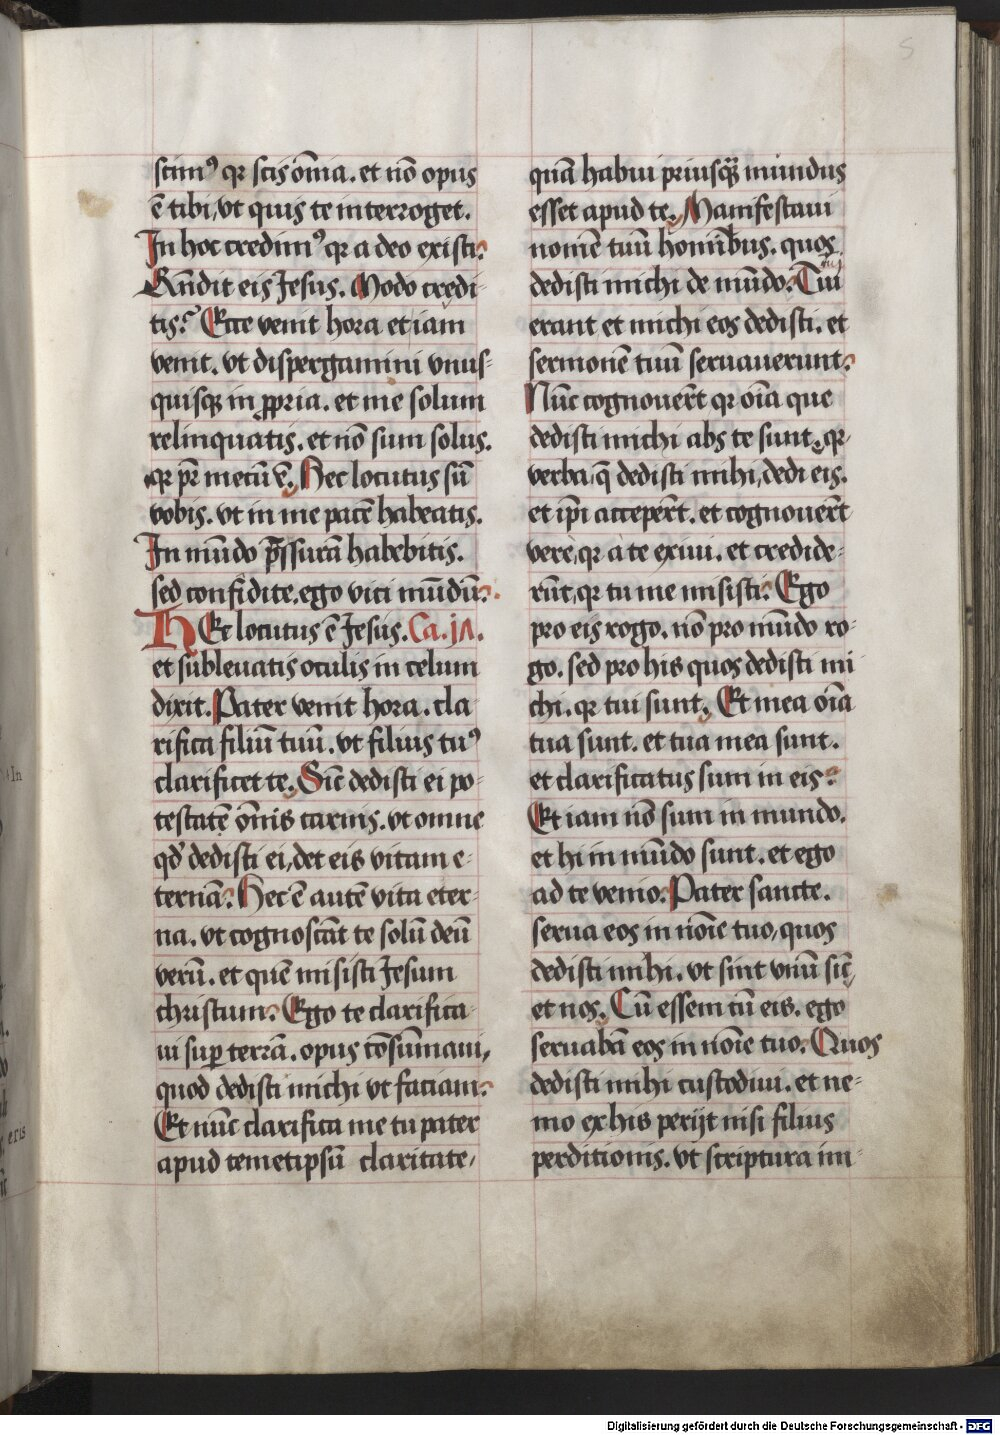 5
scimꝰ qr scis om̄ia. et nō opus
ē tibi, vt quis te interroget.
In hoc credimꝰ qr a deo existi.
Rn̄dit eis Jesus. Modo credi-
tis? Ecce venit hora et iam
venit. vt dispergamini vnus-
quisqꝫ in ꝓpria. et me solum
relinquatis. et nō sum solus.
qr pr̄ mecū ē. Hec locutus sū
vobis. vt in me pacē habeatis.
In mūdo p̄ssurā habebitis.
sed confidite. ego vici mūdū.
H Ec locutus ē Jesus. Ca. j
et subleuatis oculis in celum
dixit. Pater venit hora. cla
rifica filiū tuū. vt filius tuꝰ
clarificet te. Sic̄ dedisti ei po-
testatē om̄nis carnis. vt omne
qd̄ dedisti ei, det eis vitam e-
ternā. Hec ē autē vita eter-
na. vt cognoscāt te solū deū
verū. et quē misisti Jesum
christum. Ego te clarifica-
ui suꝑ terrā. opus cōsūmaui,
quod dedisti michi vt faciam.
Et nūc clarifica me tu pater
apud temetipsū claritate,
quā habui priusqꝫ mundus
esset apud te. Manifestaui
nomē tuū hominibus. quos
dedisti michi de mūdo. Tui
erant et michi eos dedisti. et
sermonē tuū seruauerunt.
Nūc cognouer̄t qr oīa que
dedisti michi abs te sunt. qr
verba q̄ dedisti mihi, dedi eis.
et ip̄i acceper̄t. et cognouer̄t
vere, qr a te exiui. et credide-
rūt, qr tu me misisti. Ego
pro eis rogo. nō pro mūdo ro-
go. sed pro his quos dedisti mi
chi. qr tui sunt. Et mea oīa
tua sunt. et tua mea sunt.
et clarificatus sum in eis.
Et iam nō sum in mundo.
et hi in mūdo sunt. et ego
ad te venio. Pater sancte.
serua eos in nōie tuo, quos
dedisti mihi. vt sint vnū sic̄
et nos. Cū essem cū eis. ego
seruabā eos in nōie tuo. Quos
dedisti mihi custodiui. et ne-
mo ex his perijt nisi filius
perditionis. vt scriptura im-
In
eris
Digitalisierung gefördert durch die Deutsche Forschungsgemeinschaft - DFG